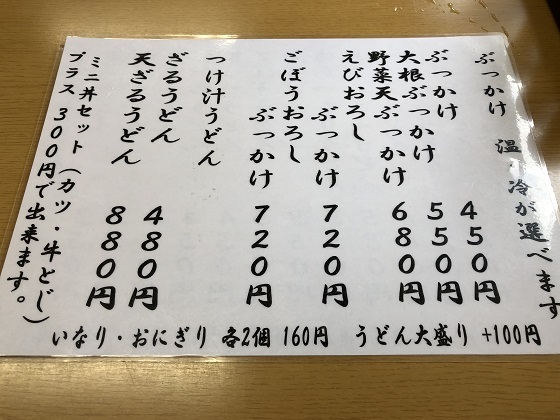 ぶっかけ 温・冷が選べます
ぶっかけ 450円
大根ぶっかけ 550円
野菜天ぶっかけ 680円
えびおろし
ぶっかけ 720円
ごぼうおろし
ぶっかけ 720円
つけ汁うどん
ざるうどん 480円
天ざるうどん 880円
ミニ丼セット(カツ・牛とじ)
プラス 300円で出来ます。
いなり・おにぎり 各2個 160円 うどん大盛り +100円